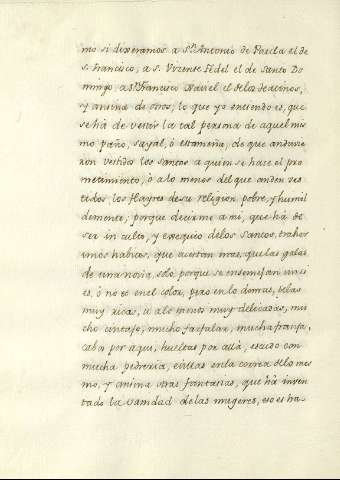 mo si dixeramos a Sn. Antonio de Padua el de
S. Francisco, a S. Vizente el de Santo Do
mingo, a Sn. Francisco Xavier el de los
y ansina de otros, lo que yo entiendo es, que
se há de vestir la tal persona de aquel mis
mo paño, sayál, ó estameña, de que anduvie
ron vestidos los Santos a quien se hace el pro
metimiento, ò a lo menos del que anden ves
tidos, los flayres de su religion, pobre, y humil
demente; porque decirme a mi, que há de
ser in culto, y exsequio de los Santos, traher
unos habitos, que cuestan mas, que las galas
de una novia, solo porque se ensemejan
ó no es en el color, pero en lo demas, telas
muy ricas, u a lo menos muy delicadas, mu
cho cintajo, mucho farfalan, mucha franja,
cabos por aquí, bueltas por allá, escudo con
mucha pedreria, evillas en la correa de lo mes
mo, y ansina otras fantasias, que há inven
tado la vanidad de las mugeres, eso es ha-